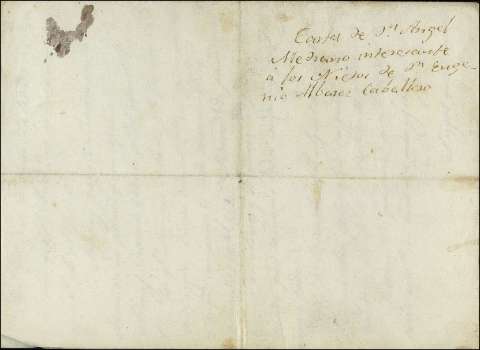 Carta de Dn Angel
Medrano interesante
á los Nietos de Dn Euge-
nio Alvarez Caballero